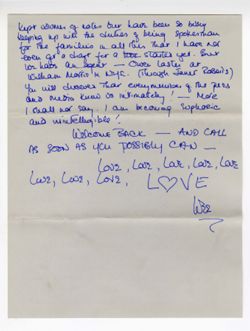 kept scores of notes but have been so busy
keeping up with the duties of being spokesman
for the families in all this that I have not
even got a chart for a book started yet. But
do have an agent — Owen Laster at
William Morris in NYC. (through James Roberts)
You will discover that everymember of the press
and media knows us intimately! — more
I shall not say. I am becoming euphoric
and unintelligible!
WELCOME BACK — AND CALL
AS SOON AS YOU POSSIBLY CAN —
LOVE, LOVE, LOVE, LOVE, LOVE
LOVE, LOVE, LOVE, LOVE